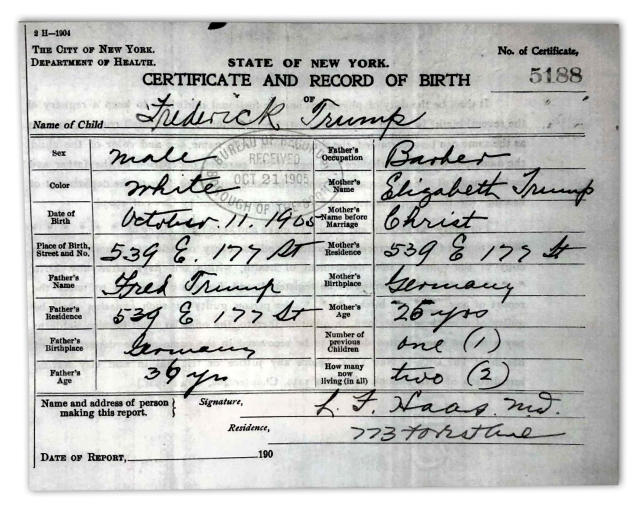 2 H—1904
THE CITY OF NEW YORK.
DEPARTMENT OF HEALTH.
No. of Certificate,
5188
STATE OF NEW YORK.
CERTIFICATE AND RECORD OF BIRTH
OF
Name of Child Frederick Trump
Sex male
Father's Occupation Barber
BUREAU OF RECORDS
RECEIVED
OCT 21 1905
BOROUGH OF THE BRONX
Color White
Mother's Name Elizabeth Trump
Date of Birth October. 11. 1905
Mother's Name before Marriage Christ
Place of Birth, Street and No. 539 E. 177 St
Mother's Residence 539 E 177 St
Father's Name Fred Trump
Mother's Birthplace Germany
Father's Residence 539 E 177 St
Mother's Age 25 yrs
Father's Birthplace Germany
Number of previous Children one (1)
Father's Age 39 yrs
How many now living (in all) two (2)
Name and address of person making this report. } Signature, L. F. Haas. M.D.
Residence, 773 Forest Ave
DATE OF REPORT, 190